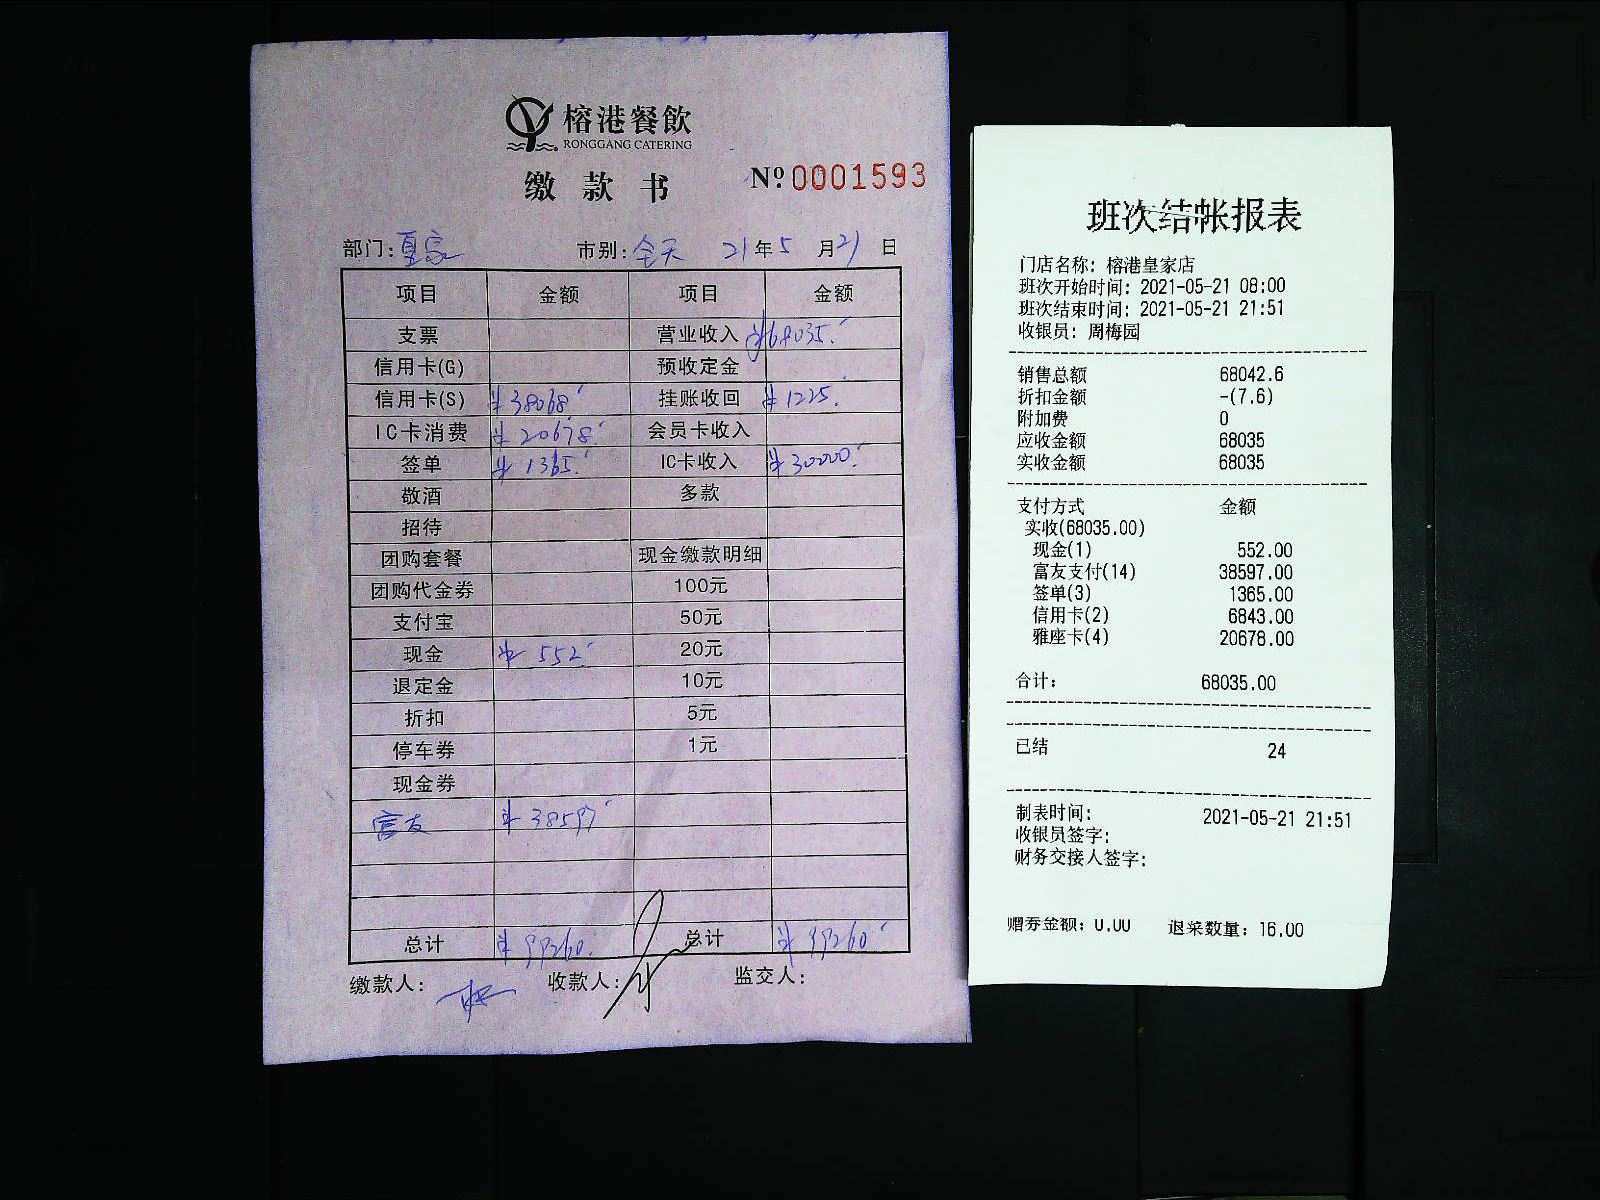 榕港餐飲
RONGGANG CATERING
缴款书 Nº 0001593
部门: 皇家 市别: 全天 21年5月21日
项目 金额 项目 金额
支票 营业收入 ¥68035.
信用卡(G) 预收定金
信用卡(S) ¥38068 挂账收回 ¥1225.
IC卡消费 ¥20678. 会员卡收入
签单 ¥1365. IC卡收入 ¥30000.
敬酒 多款
招待
团购套餐 现金缴款明细
团购代金券 100元
支付宝 50元
现金 ¥552 20元
退定金 10元
折扣 5元
停车券 1元
现金券
富友 ¥38597
总计 ¥99260. 总计 ¥99260
缴款人: 收款人: 监交人:
班次结帐报表
门店名称: 榕港皇家店
班次开始时间: 2021-05-21 08:00
班次结束时间: 2021-05-21 21:51
收银员: 周梅园
销售总额 68042.6
折扣金额 -(7.6)
附加费 0
应收金额 68035
实收金额 68035
支付方式 金额
实收(68035.00)
现金(1) 552.00
富友支付(14) 38597.00
签单(3) 1365.00
信用卡(2) 6843.00
雅座卡(4) 20678.00
合计: 68035.00
已结 24
制表时间: 2021-05-21 21:51
收银员签字:
财务交接人签字:
赠券金额: 0.00 退菜数量: 16.00